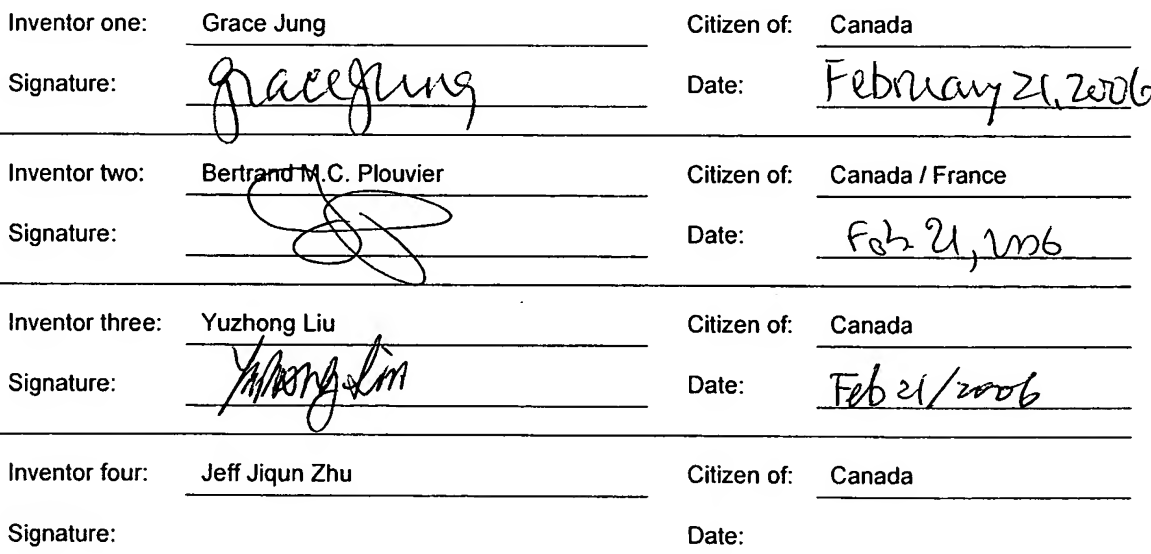 Inventor one: Grace Jung Citizen of: Canada
Signature: Grace Jung Date: February 21, 2006
Inventor two: Bertrand M.C. Plouvier Citizen of: Canada / France
Signature: Date: Feb 21, 2006
Inventor three: Yuzhong Liu Citizen of: Canada
Signature: Yuzhong Liu Date: Feb 21/2006
Inventor four: Jeff Jiqun Zhu Citizen of: Canada
Signature: Date: